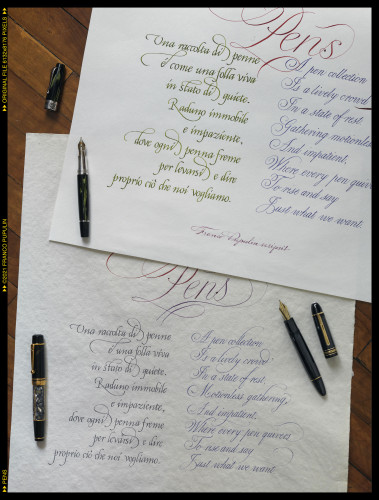 Pens
Una raccolta di penne
è come una folla viva
in stato di quiete.
Raduno immobile
e impaziente,
dove ogni penna freme
per levarsi e dire
proprio ciò che noi vogliamo.
A pen collection
Is a lively crowd
In a state of rest.
Gathering motionless
And impatient,
Where every pen quivers
To rise and say
Just what we want.
Franco Pupulin scripsit
Pens
Una raccolta di penne
è una folla viva
in stato di quiete.
Raduno immobile
e impaziente,
dove ogni penna freme
per levarsi e dire
proprio ciò che noi vogliamo.
A pen collection
Is a lively crowd
In a state of rest.
Motionless gathering,
And impatient,
Where every pen quivers
To rise and say
Just what we want
ORIGINAL FILE 6132x8176 PIXELS
©2021 FRANCO PUPULIN
PENS